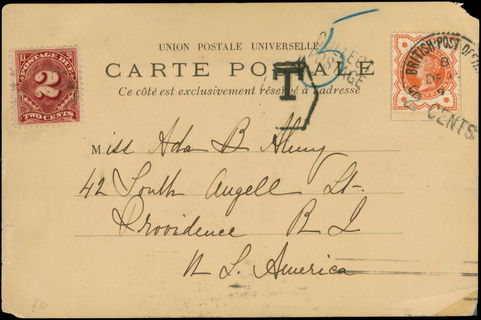 UNION POSTALE UNIVERSELLE
CARTE POSTALE
Ce côté est exclusivement réservé à l'adresse
POSTAGE DUE
2
TWO CENTS
T
5
BRITISH POST OFFICE
8
DE
CENTS
Miss Ada B
42 South Angell St.
Providence R I
U S. America